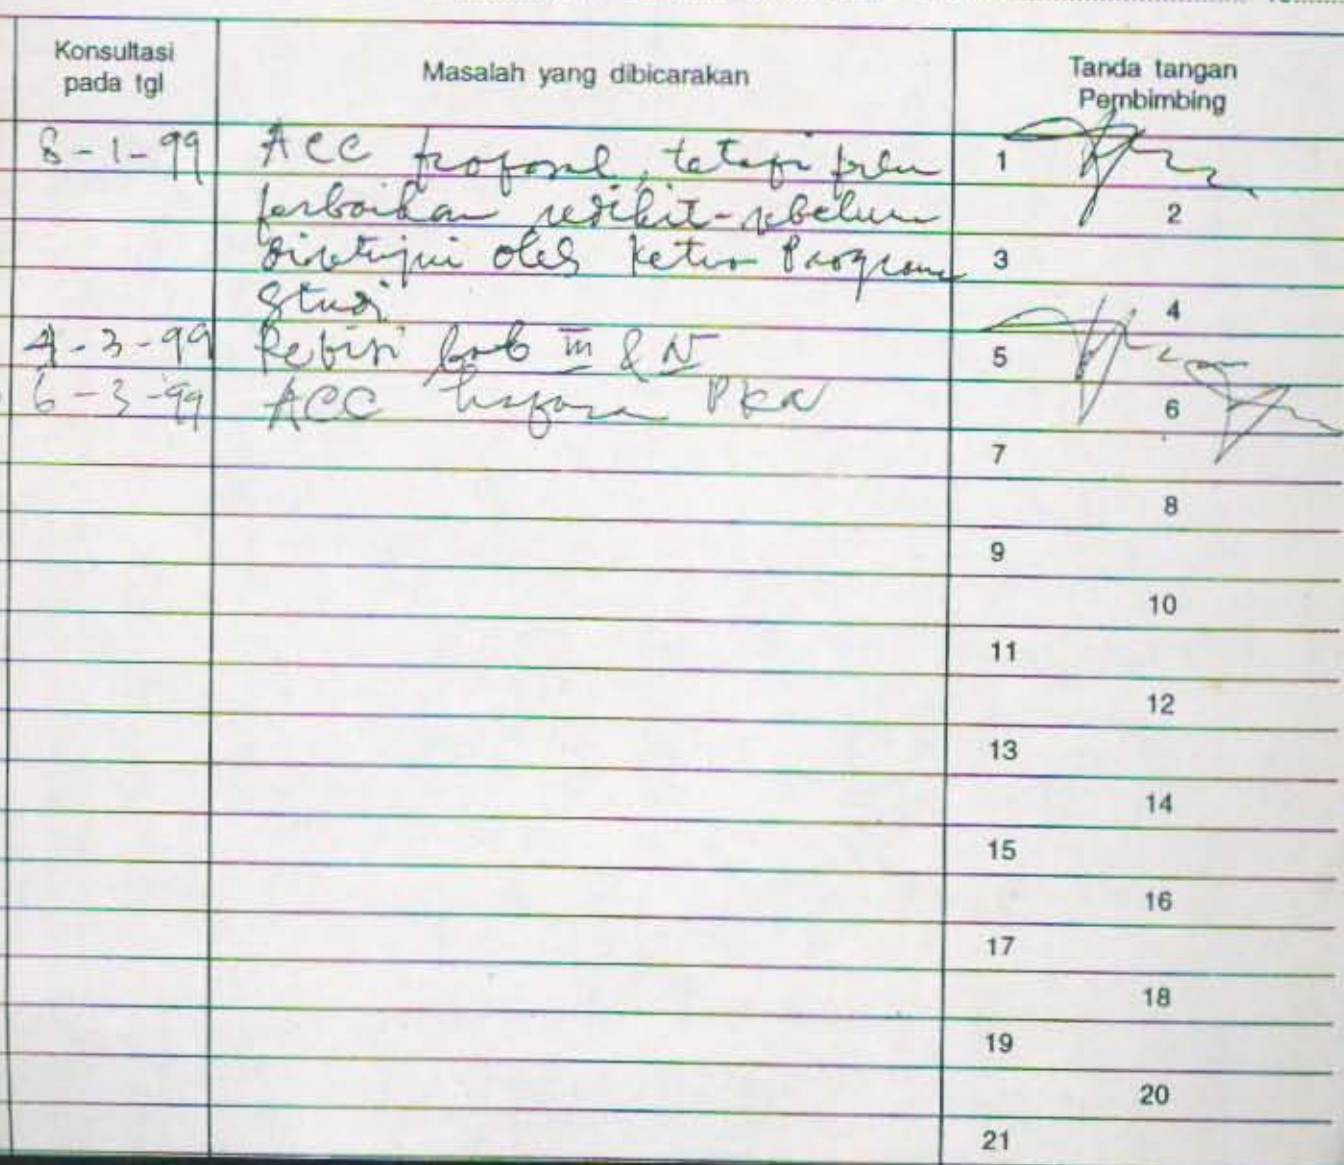 Konsultasi pada tgl
Masalah yang dibicarakan
Tanda tangan Pembimbing
8-1-99 ACC proposal, tetapi perlu 1
perbaikan sedikit sebelum 2
disetujui oleh Ketua Program 3
Studi 4
4-3-99 Revisi bab III & IV 5
6-3-99 ACC laporan PKL 6
7
8
9
10
11
12
13
14
15
16
17
18
19
20
21